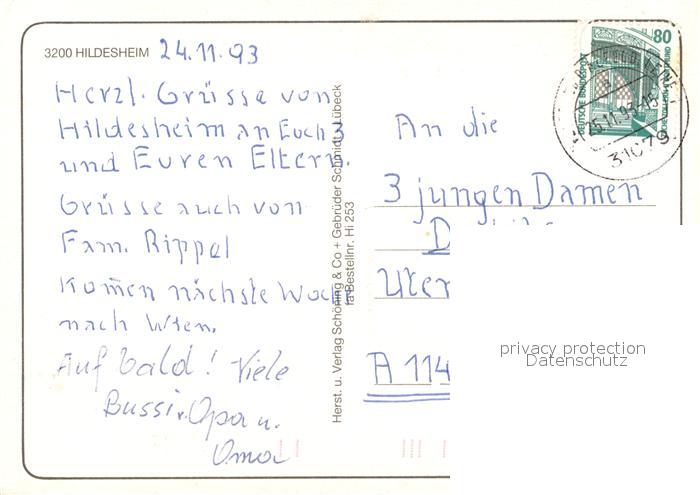 3200 HILDESHEIM 24.11.93
Herzl. Grüsse von
Hildesheim an Euch 3
und Euren Eltern.
Grüsse auch von
Fam. Rippel
Kom̄en nächste Woche
nach Wien.
Auf bald! Viele
Bussi v. Opa u.
Oma
Herst. u. Verlag Schöning & Co + Gebrüder Schmidt, Lübeck
Bestellnr. Hi 253
80
DEUTSCHE BUNDESPOST
31079
An die
3 jungen Damen
A 114
privacy protection
Datenschutz